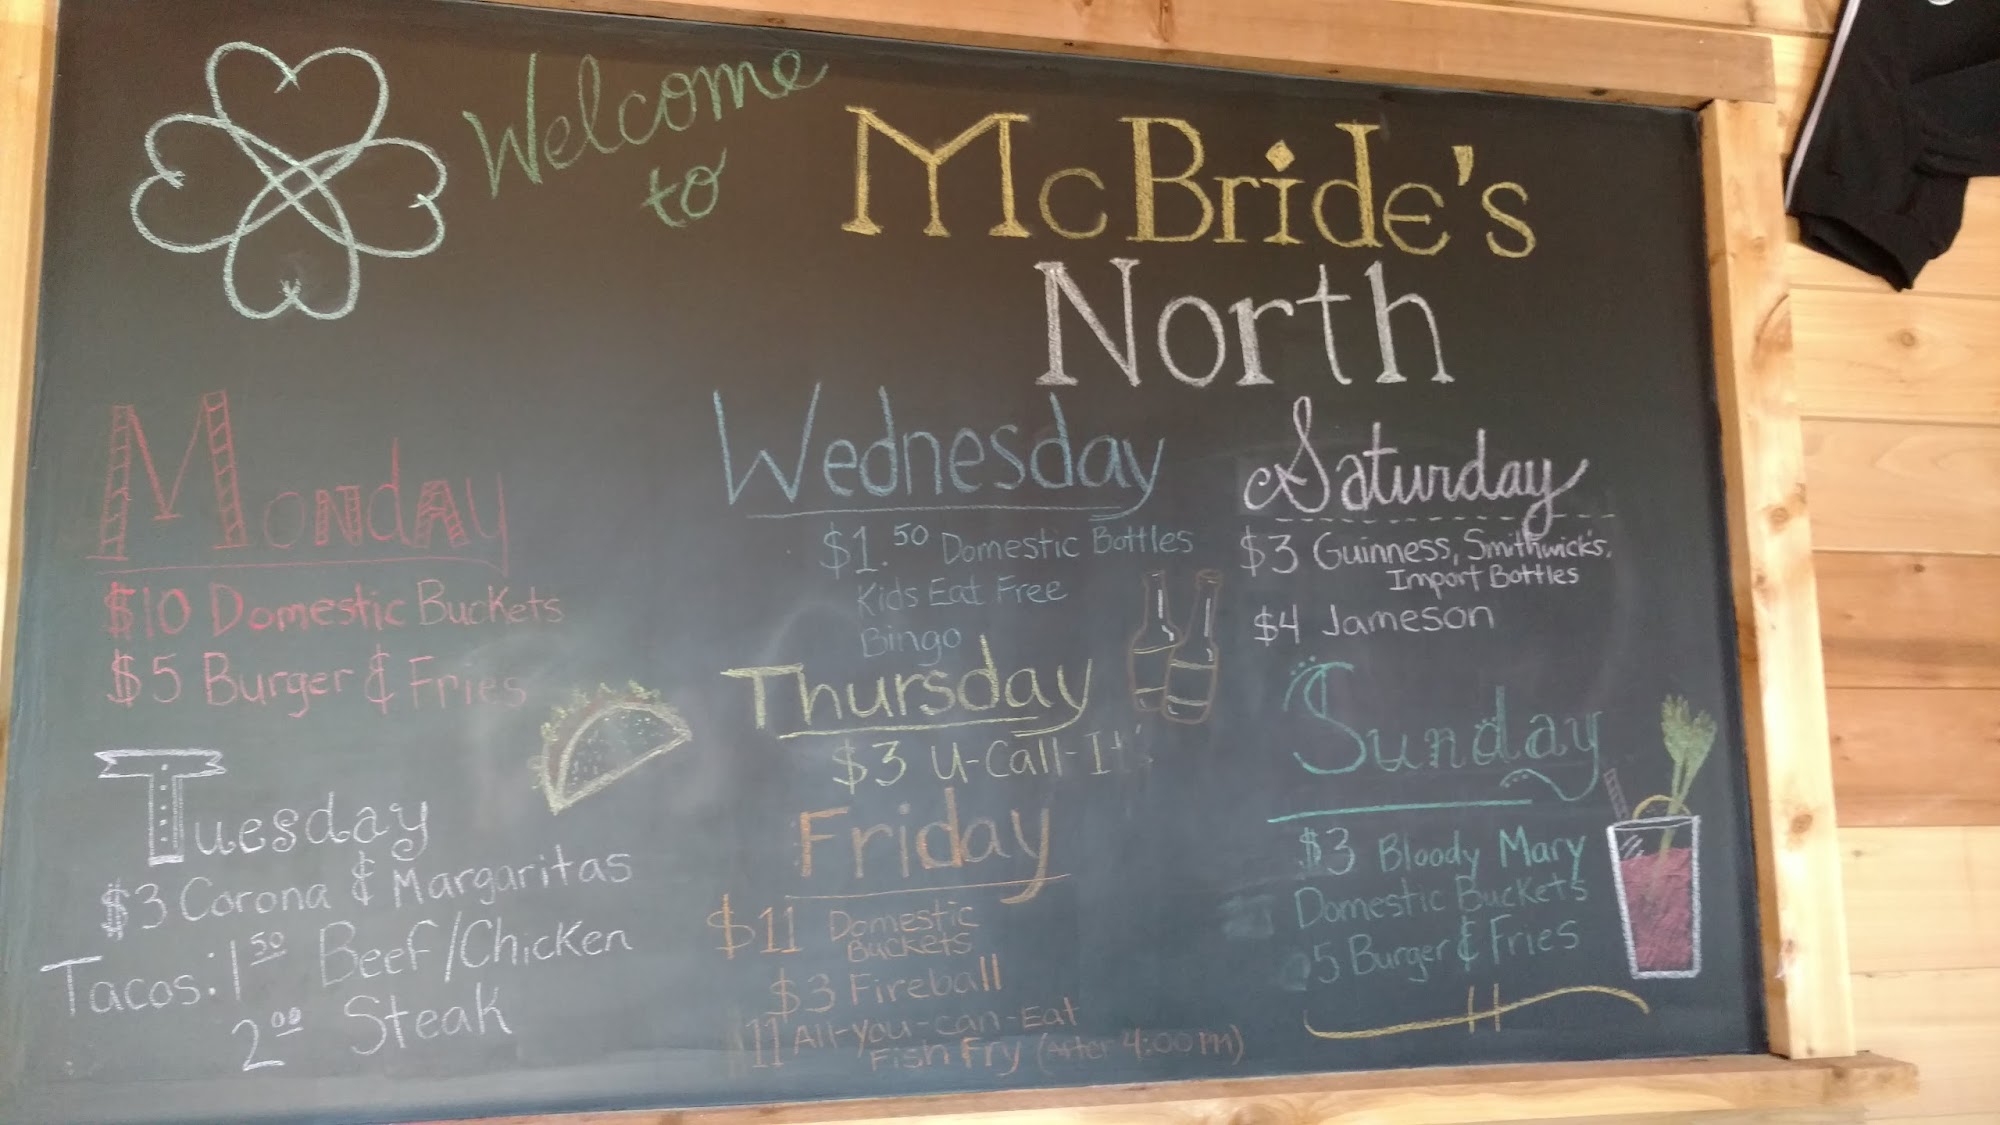 Welcome
to
McBride's
North
Monday
$10 Domestic Buckets
$5 Burger & Fries
Tuesday
$3 Corona & Margaritas
Tacos: 1.50 Beef/Chicken
2.00 Steak
Wednesday
$1.50 Domestic Bottles
Kids Eat Free
Bingo
Thursday
$3 U-Call-It
Friday
$11 Domestic
Buckets
$3 Fireball
$11 All-you-can-Eat
Fish Fry (After 4:00 PM)
Saturday
$3 Guinness, Smithwick's,
Import Bottles
$4 Jameson
Sunday
$3 Bloody Mary
Domestic Buckets
5 Burger & Fries